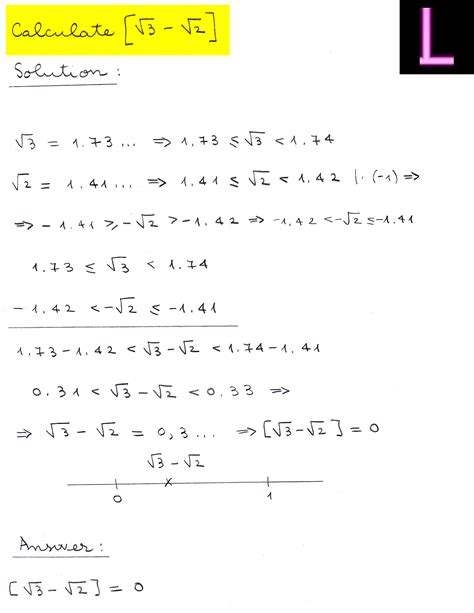 Calculate [√3 - √2]
L
Solution :
√3 = 1.73... ⇒ 1.73 ≤ √3 < 1.74
√2 = 1.41... ⇒ 1.41 ≤ √2 < 1.42 |· (-1) ⇒
⇒ - 1.41 ≥ -√2 > -1.42 ⇒ -1.42 < -√2 ≤ -1.41
1.73 ≤ √3 < 1.74
- 1.42 < -√2 ≤ -1.41
1.73 - 1.42 < √3 - √2 < 1.74 - 1.41
0.31 < √3 - √2 < 0.33 ⇒
⇒ √3 - √2 = 0,3... ⇒ [√3 - √2] = 0
√3 - √2
0 1
Answer :
[√3 - √2] = 0